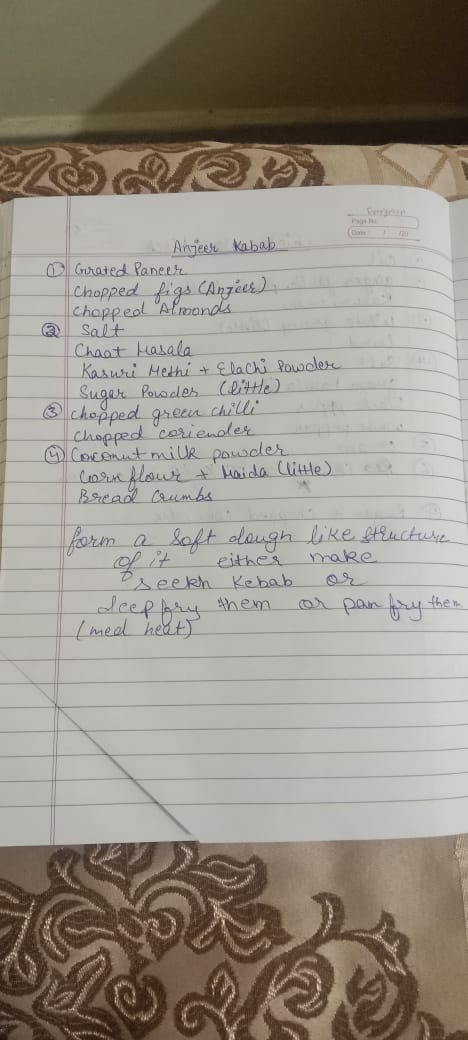 Evergreen
Page No.
Date: / /20
Anjeer Kabab
① Grated Paneer
Chopped figs (Anjeer)
chopped Almonds
② Salt
Chaat Masala
Kasuri Methi + Elachi Powder
Sugar Powder (little)
③ chopped green chilli
Chopped coriender
④ Coconut milk powder
Corn flour + Maida (little)
Bread Crumbs
form a soft dough like structure
of it either make
seekh Kebab or
deep fry them or pan fry them
(med heat)